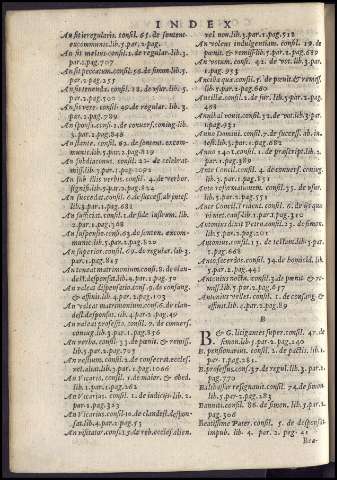 INDEX
An sit irregularis. consil. 65. de senten.
excommunic. lib. 5. par. 2. pag.
An sit melius. consil. 1. de regular. lib. 3.
par. 2. pag. 707
An sit peccatum. consil. 56. de simon. lib. 5.
par. 2. pag. 255
An sit tenenda. consil. 18. de usur. lib. 5.
par. 2. pag. 502
An sit vere. consil. 49. de regular. lib. 3.
par. 2. pag. 789
An sponsi. consil. 2. de convers. coniug. lib.
3. par. 2. pag. 848
An stante. consil. 62. de senten. excom-
munic. lib. 5. par. 2. pag. 819
An subdiaconus. consil. 22. de celebrat.
miss. lib. 3. par. 2. pag. 1095
An sub illis verbis. consil. 4. de verbor.
signif. lib. 5. par. 2. pag. 824
An succedat. consil. 6. de success. ab intest.
lib. 3. par. 1. pag. 681
An sufficiat. consil. 1. de fide instrum. lib.
2. par. 1. pag. 308
An suspensio. consil. 63. de senten. excom-
munic. lib. 5. par. 2. pag. 820
An superior. consil. 69. de regular. lib. 3.
par. 2. pag. 845
An teneat matrimonium. consil. 8. de clan-
dest. desponsat. lib. 4. par. 2. pag. 59
An valeat dispensatio. cons. 9. de consang.
& affinit. lib. 4. par. 2. pag. 103
An valeat matrimonium. cons. 6. de clan-
dest. desponsat. lib. 4. par. 2. pag. 49
An valeat professio. consil. 7. de convers.
coniug. lib. 3. par. 1. pag. 856
An verba. consil. 33. de pœnit. & remiss.
lib. 5. par. 2. pag. 795
An vesilium. consil. 2. de consecrat. eccles.
vel. altar. lib. 3. par. 2. pag. 1066
An Vicarius. consil. 5. de maior. & obed.
lib. 1. par. 1. pag. 262
An Vicarius. consil. 1. de iudicijs. lib. 2.
par. 1. pag. 323
An Vicarius. consil. 10. de clandest. despon-
sat. lib. 4. par. 2. pag. 53
An visitator. consil. 5. de reb. eccles. alien.
vel non. lib. 3. par. 1. pag. 518
An volens indulgentiam. consil. 19. de
pœnit. & remiss. lib. 5. par. 2. pag. 689
An votum. consil. 42. de vot. lib. 3. par.
2. pag. 953
Ancilla qua. consil. 5. de pœnit. & remiss.
lib. 5. par. 2. pag. 660
Ancilla. consil. 2. de fur. lib. 5. par. 2. pag.
488
Annibal vovit. consil. 32. de vot. lib. 3. par.
2. pag. 931
Anno Domini. consil. 7. de success. ab in-
test. lib. 3. par. 1. pag. 682
Anno 1401. consil. 1. de præscript. lib. 2.
par. 1. pag. 389
Ante Concil. consil. 4. de convers. coniug.
lib. 3. par. 2. pag. 851
Ante reformationem. consil. 35. de usur.
lib. 5. par. 2. pag. 551
Ante Concil. Trident. consil. 6. de iis quæ
vi met. caus. lib. 1. par. 1. pag. 310
Antonius dixit Petro. consil. 23. de simon.
lib. 5. par. 2. pag. 201
Antonius consil. 13. de testam. lib. 3. par. 1.
pag. 668
Ante sacerdos. consil. 34. de homicid. lib.
5. par. 2. pag. 442
Antonius noster. consil. 3. de pœnit. & re-
miss. lib. 5. par. 2. pag. 657
Antonius volens. consil. 1. de consang. &
affinit. lib. 4. par. 2. pag. 89
B
B. & G. litigantes super. consil. 47. de
simon. lib. 5. par. 2. pag. 240
B. pensionarius. consil. 2. de pactis. lib. 1.
par. 1. pag. 281.
B. professus. consil. 37. de regul. lib. 3. par. 2.
pag. 770
Balthasar resignavit. consil. 74. de simon.
lib. 5. par. 2. pag. 283
Banniti. consil. 86. de simon. lib. 5. par. 2.
pag. 302
Beatissime Pater. consil. 5. de desponsat.
impub. lib. 4. par. 2. pag. 21
Bea-